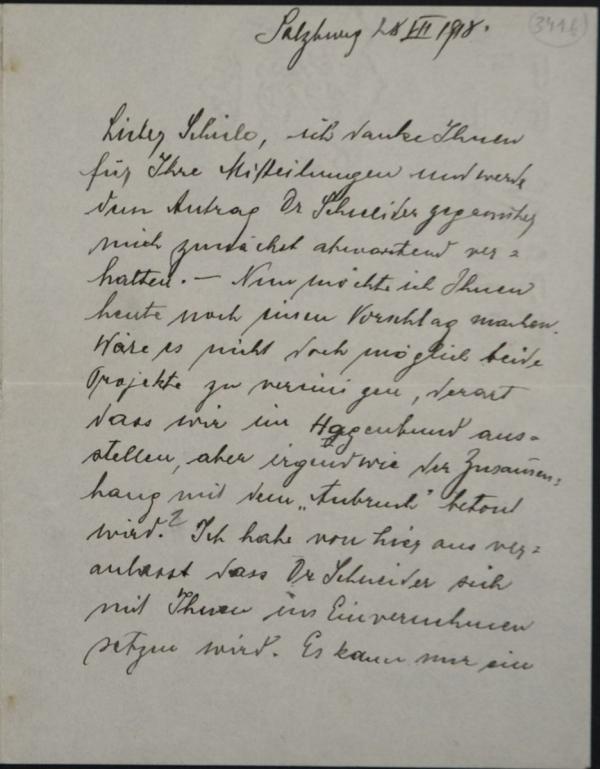 Salzburg 28 VII 1918.
3416
Lieber Schiele, ich danke Ihnen
für Ihre Mitteilungen und werde
dem Antrag Dr Schneider gegenüber
mich zunächst abwartend ver=
halten. — Nun möchte ich Ihnen
heute noch einen Vorschlag machen.
Wäre es nicht doch möglich beide
Projekte zu vereinigen, derart
dass wir im Hagenbund aus=
stellen, aber irgendwie der Zusammen=
hang mit dem „Anbruch" betont
wird.? Ich habe von hier aus ver=
anlasst dass Dr Schneider sich
mit Ihnen ins Einvernehmen
setzen wird. Es kann nur ein